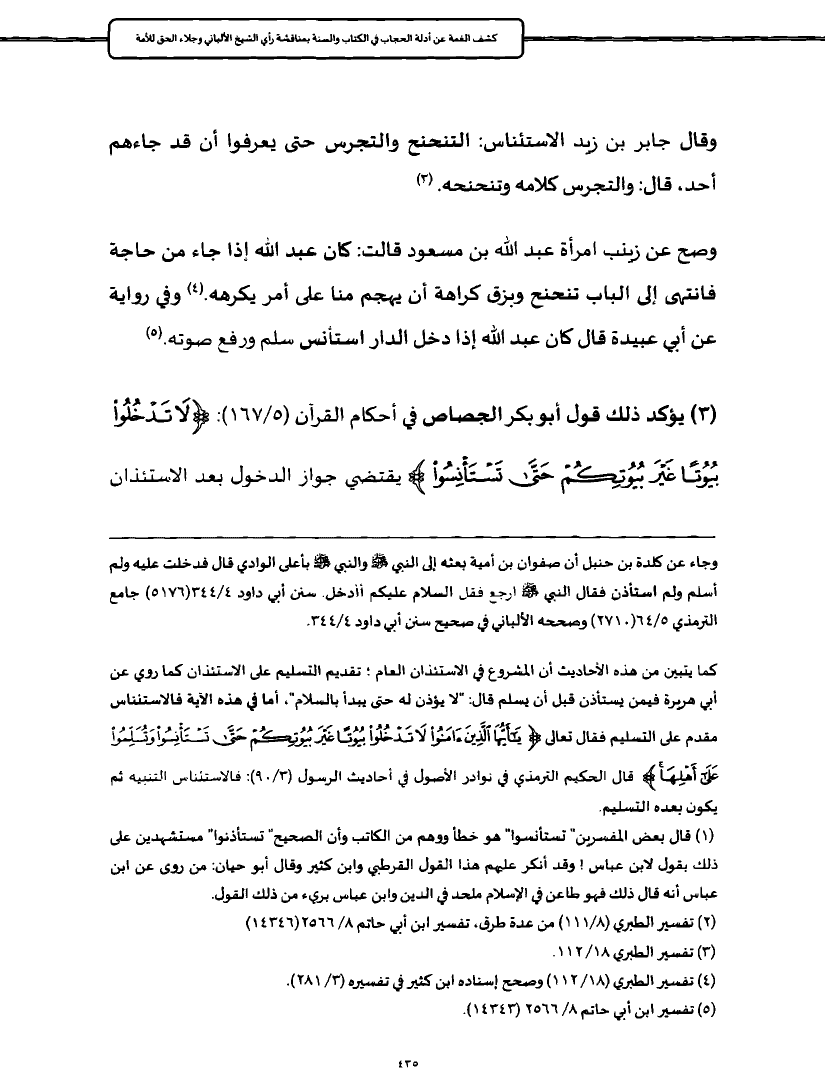 كشف الغمة عن أدلة الحجاب في الكتاب والسنة بمناقشة رأي الشيخ الألباني وجلاء الحق للأمة
وقال جابر بن زيد الاستئناس: التنحنح والتجرس حتى يعرفوا أن قد جاءهم
أحد، قال: والتجرس كلامه وتنحنحه. (٣)
وصح عن زينب امرأة عبد الله بن مسعود قالت: كان عبد الله إذا جاء من حاجة
فانتهى إلى الباب تنحنح وبزق كراهة أن يهجم منا على أمر يكرهه.(٤) وفي رواية
عن أبي عبيدة قال كان عبد الله إذا دخل الدار استأنس سلم ورفع صوته.(٥)
(٣) يؤكد ذلك قول أبو بكر الجصاص في أحكام القرآن (١٦٧/٥): ﴿لَا تَدۡخُلُواْ
بُيُوتًا غَيۡرَ بُيُوتِكُمۡ حَتَّىٰ تَسۡتَأۡنِسُواْ ﴾ يقتضي جواز الدخول بعد الاستئذان
وجاء عن كلدة بن حنبل أن صفوان بن أمية بعثه إلى النبي ﷺ والنبي ﷺ بأعلى الوادي قال فدخلت عليه ولم
أسلم ولم استأذن فقال النبي ﷺ ارجع فقل السلام عليكم أأدخل. سنن أبي داود ٣٤٤/٤(٥١٧٦) جامع
الترمذي ٦٤/٥(٢٧١٠) وصححه الألباني في صحيح سنن أبي داود ٣٤٤/٤.
كما يتبين من هذه الأحاديث أن المشروع في الاستئذان العام ؛ تقديم التسليم على الاستئذان كما روي عن
أبي هريرة فيمن يستأذن قبل أن يسلم قال: "لا يؤذن له حتى يبدأ بالسلام"، أما في هذه الآية فالاستئناس
مقدم على التسليم فقال تعالى ﴿ يَٰٓأَيُّهَا ٱلَّذِينَ ءَامَنُواْ لَا تَدۡخُلُواْ بُيُوتًا غَيۡرَ بُيُوتِكُمۡ حَتَّىٰ تَسۡتَأۡنِسُواْ وَتُسَلِّمُواْ
عَلَىٰٓ أَهۡلِهَاۚ ﴾ قال الحكيم الترمذي في نوادر الأصول في أحاديث الرسول (٩٠/٣): فالاستئناس التنبيه ثم
يكون بعده التسليم.
(١) قال بعض المفسرين" تستأنسوا" هو خطأ ووهم من الكاتب وأن الصحيح" تستأذنوا" مستشهدين على
ذلك بقول لابن عباس ! وقد أنكر عليهم هذا القول القرطبي وابن كثير وقال أبو حيان: من روى عن ابن
عباس أنه قال ذلك فهو طاعن في الإسلام ملحد في الدين وابن عباس بريء من ذلك القول.
(٢) تفسير الطبري (١١١/٨) من عدة طرق، تفسير ابن أبي حاتم ٨/ ٢٥٦٦(١٤٣٤٦)
(٣) تفسير الطبري ١١٢/١٨.
(٤) تفسير الطبري (١١٢/١٨) وصحح إسناده ابن كثير في تفسيره (٢٨١/٣).
(٥) تفسير ابن أبي حاتم ٨/ ٢٥٦٦ (١٤٣٤٣).
٤٣٥